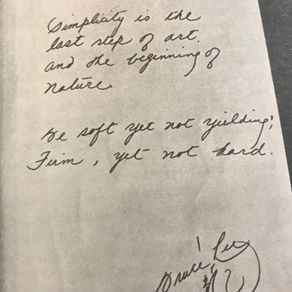 Simplicity is the
last step of art,
and the beginning of
nature.
Be soft yet not yielding,
Firm, yet not hard.
Bruce Lee